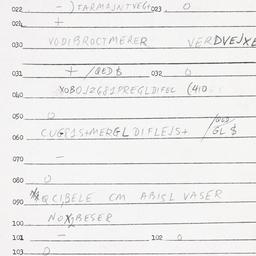 022 - ) TARMAJNTVEGI 023 0
024 +
030 VODIBROCTMERER VERDVEJXE
031 + /QED$ 032 0
040 XOBOJ2G81PREGLDIFEL (410
050 0
CUG81S+MERGLDIFLEJS+ /GL$
060
070 -
080 0
090 QCIBELE CM ABISL VASER
100 NOX2BESER
101 - 102 0
103 0